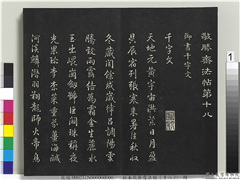 敬勝齋法帖第十八
御書千字文
千字文
天地元黃宇宙洪荒日月盈
昃辰宿列張寒來暑往秋收
冬藏閏餘成歲律呂調陽雲
騰致雨露結為霜金生麗水
玉出崑岡劍號巨闕珠稱夜
光果珍李柰菜重芥薑海鹹
河淡鱗潛羽翔龍師火帝鳥